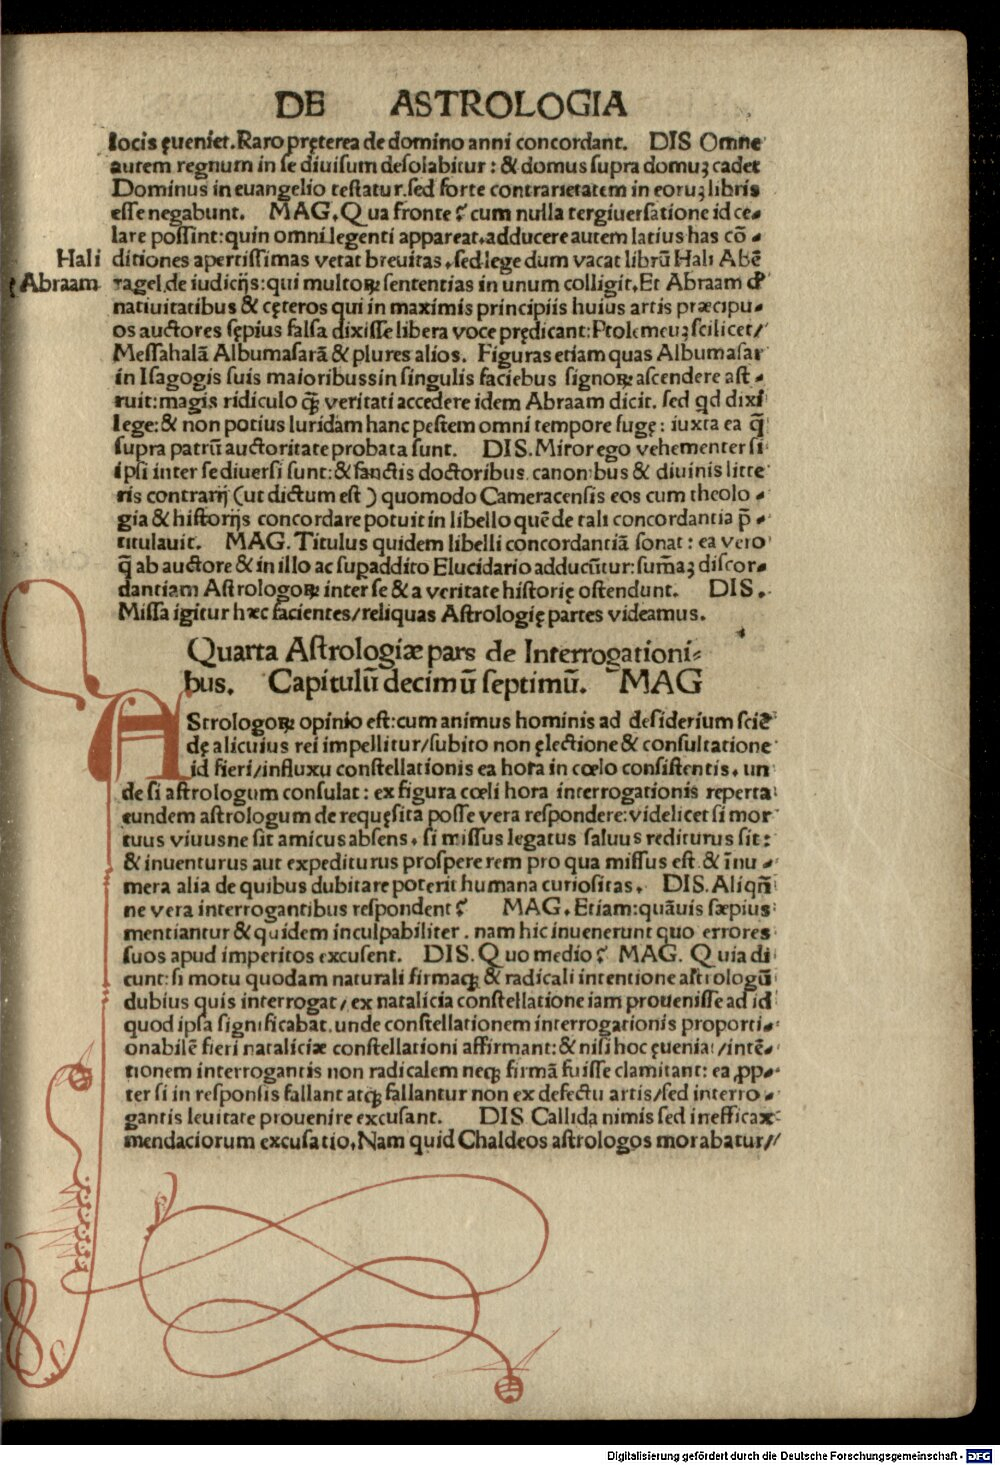 DE ASTROLOGIA
locis ęueniet. Raro pręterea de domino anni concordant. DIS Omne
autem regnum in se diuisum desolabitur: & domus supra domuȝ cadet
Dominus in euangelio testatur. sed forte contrarietatem in eoruȝ libris
esse negabunt. MAG. Qua fronte? cum nulla tergiuersatione id ce-
lare possint: quin omni legenti appareat. adducere autem latius has cō-
Hali ditiones apertissimas vetat breuitas. sed lege dum vacat librū Hali Abē
ę Abraam ragel de iudicijs: qui multoꝝ sententias in unum colligit. Et Abraam d
natiuitatibus & cęteros qui in maximis principiis huius artis præcipu-
os auctores sępius falsa dixisse libera voce prędicant: Ptolemeuȝ scilicet/
Messahalā Albumasarā & plures alios. Figuras etiam quas Albumasar
in Isagogis suis maioribus sin singulis faciebus signoꝝ ascendere ast-
ruit: magis ridiculo q̄ȝ veritati accedere idem Abraam dicit. sed qd dixi
lege: & non potius luridam hanc pestem omni tempore fuge: iuxta ea q̄
supra patrū auctoritate probata sunt. DIS. Miror ego vehementer si
ipsi inter se diuersi sunt: & sanctis doctoribus. canonibus & diuinis litte
ris contrarij (ut dictum est) quomodo Cameracensis eos cum theolo-
gia & historijs concordare potuit in libello quē de tali concordantia p̄-
titulauit. MAG. Titulus quidem libelli concordantiā sonat: ea vero
q̄ ab auctore & in illo ac supaddito Elucidario adducūtur: sum̄aȝ discor-
dantiam Astrologoꝝ inter se & a veritate historię ostendunt. DIS.
Missa igitur hæc facientes/reliquas Astrologię partes videamus.
Quarta Astrologiæ pars de Interrogationi-
bus. Capitulū decimū septimū. MAG
AStrologoꝝ opinio est: cum animus hominis ad desiderium sciē
dę alicuius rei impellitur/subito non ęlectione & consultatione
id fieri/influxu constellationis ea hora in cœlo consistentis. un
de si astrologum consulat: ex figura cœli hora interrogationis reperta
eundem astrologum de requęsita posse vera respondere: videlicet si mor
tuus viuusne sit amicus absens. si missus legatus saluus rediturus sit:
& inuenturus aut expediturus prospere rem pro qua missus est. & īnu-
mera alia de quibus dubitare poterit humana curiositas. DIS. Aliqn̄
ne vera interrogantibus respondent? MAG. Etiam: quāuis sæpius
mentiantur & quidem inculpabiliter. nam hic inuenerunt quo errores
suos apud imperitos excusent. DIS. Quo medio? MAG. Quia di
cunt: si motu quodam naturali firmaqȝ & radicali intentione astrologū
dubius quis interrogat/ ex natalicia constellatione iam prouenisse ad id
quod ipsa significabat. unde constellationem interrogationis proporti-
onabilē fieri nataliciæ constellationi affirmant: & nisi hoc ęueniat/intē-
tionem interrogantis non radicalem neqȝ firmā fuisse clamitant: ea ꝓp-
ter si in responsis fallant atqȝ fallantur non ex defectu artis/sed interro-
gantis leuitate prouenire excusant. DIS Callida nimis sed inefficax
mendaciorum excusatio. Nam quid Chaldeos astrologos morabatur/
Digitalisierung gefördert durch die Deutsche Forschungsgemeinschaft - DFG